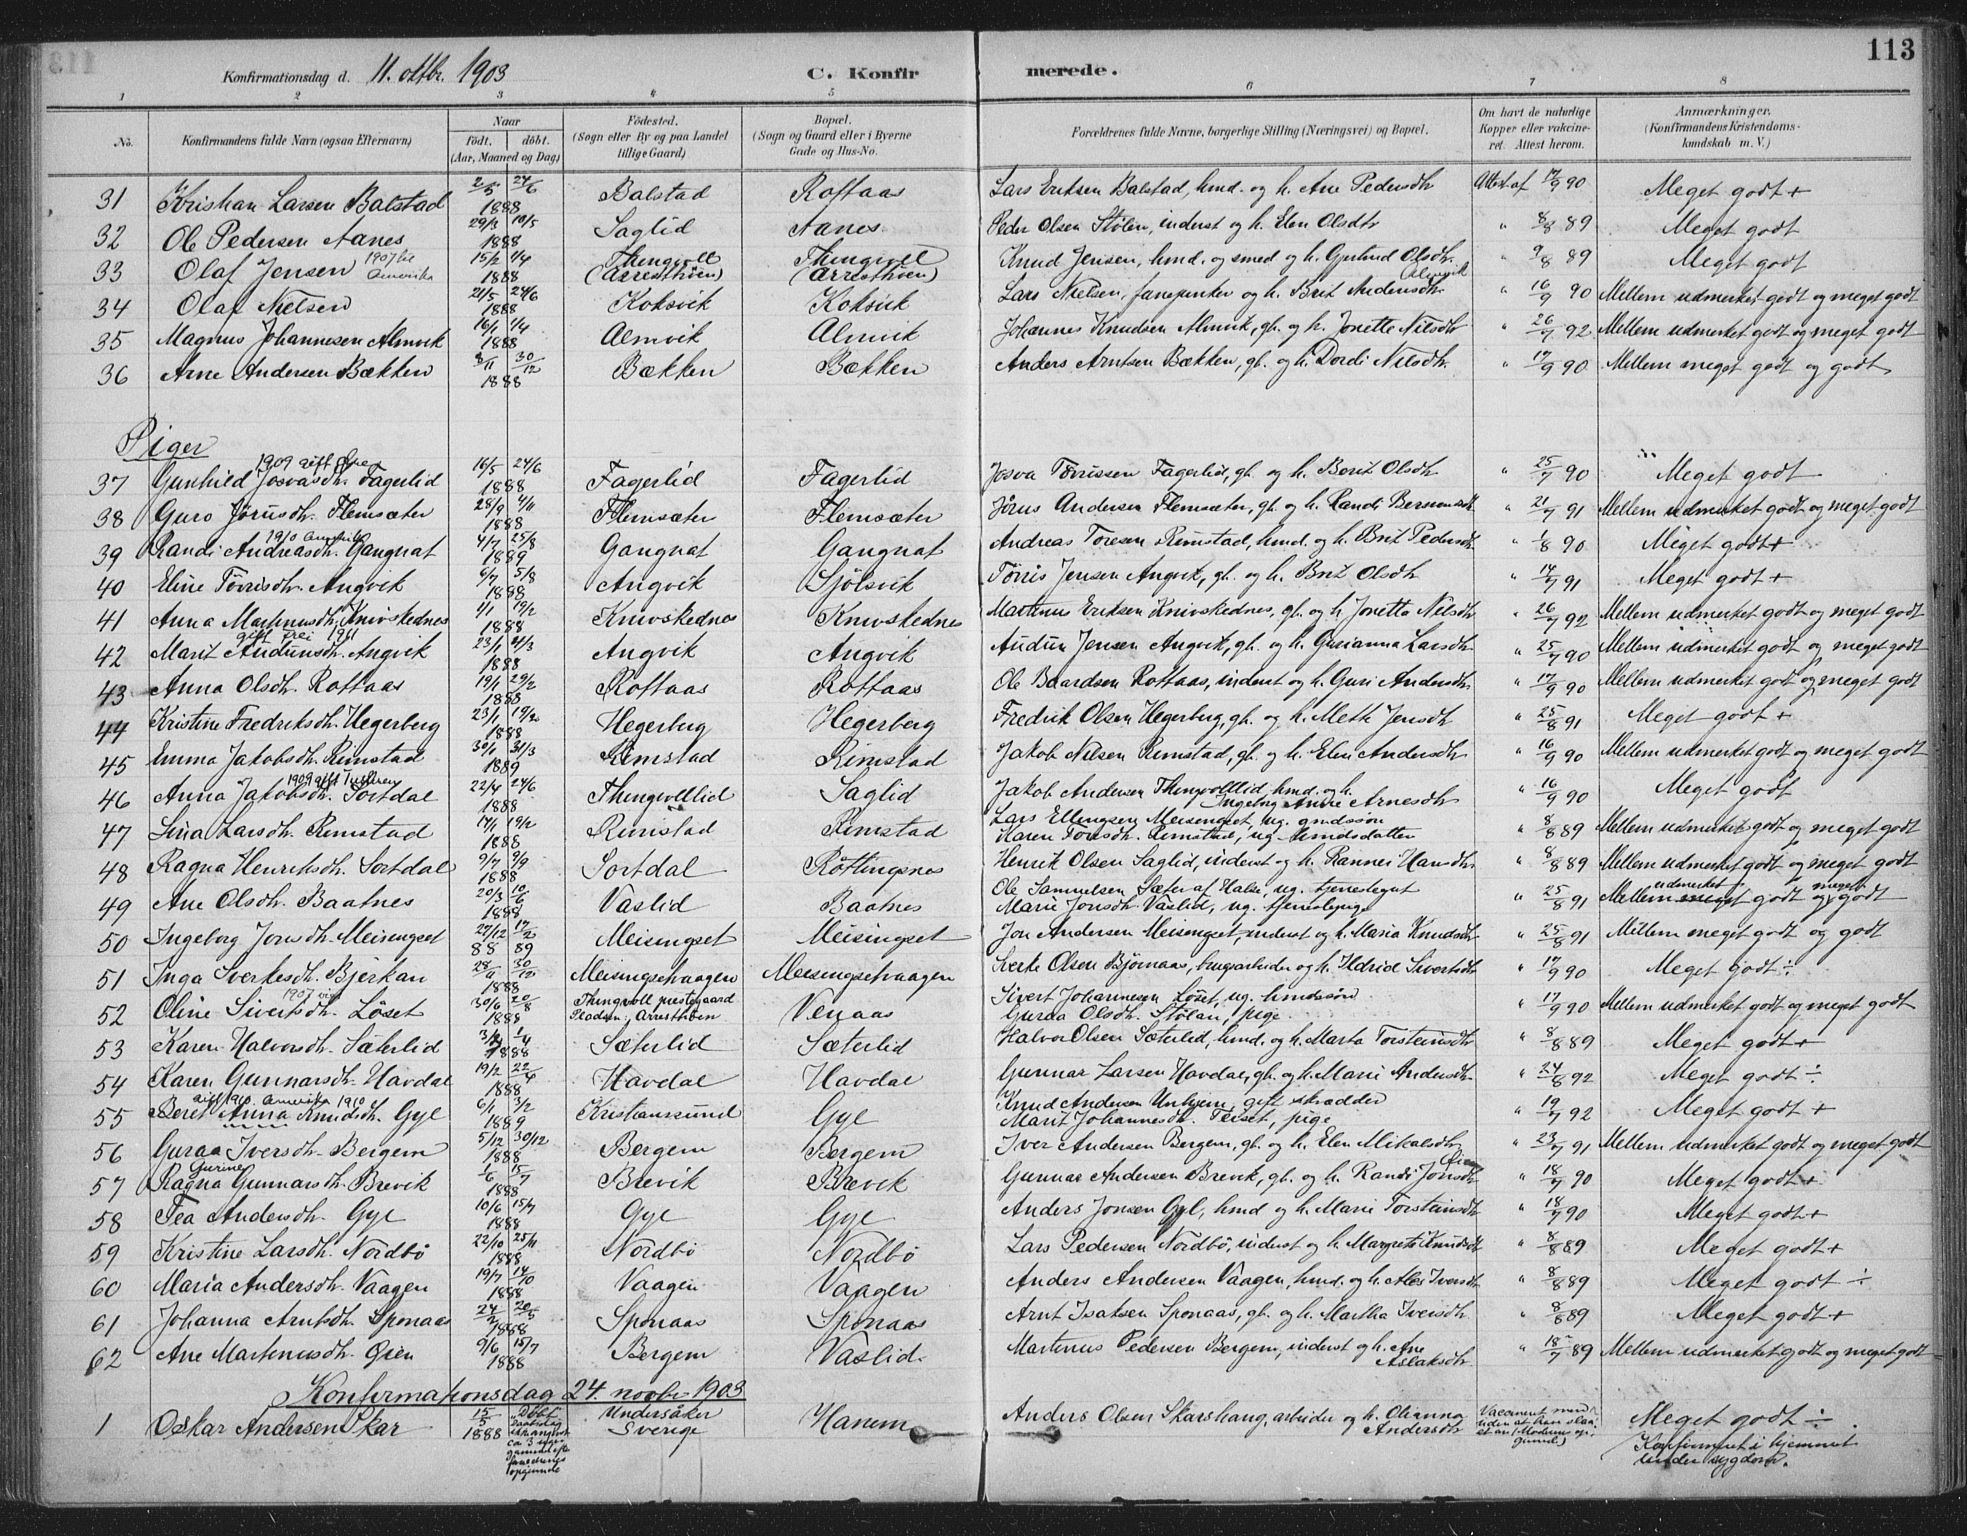 113
Konfirmationsdag d. 11. oktbr. 1903 C. Konfirmerede.
1 2 3 4 5 6 7 8
No. Konfirmandens fulde Navn (ogsaa Efternavn) Naar födt. döbt. (Aar, Maaned og Dag) Födested. (Sogn eller By og paa Landet tillige Gaard) Bopæl. (Sogn og Gaard eller i Byerne Gade og Hus-No. Forældrenes fulde Navne, borgerlige Stilling (Næringsvei) og Bopæl. Om havt de naturlige Kopper eller vaccineret. Attest herom. Anmærkninger. (Konfirmandens Kristendomskundskab m. V.)
31 Kristian Larsen Balstad 2/5 24/6 1888 Balstad Rottaas Lars Eriksen Balstad, hmd. og h. Ane Pedersdtr Attest af 17/9 90 Meget godt +
32 Ole Pedersen Aanes 29/3 10/5 1888 Saglid Aanes Peder Olsen Stölen, inderst og h. Elen Olsdtr " 8/8 89 Meget godt
33 Olaf Jensen 1907 til Amerika 15/2 1/4 1888 Thingvoll (Arresthöen) Thingvoll (Arresthöen) Knud Jensen, hmd. og smed og h. Gurtrud Olsdtr. " 9/8 89 Meget godt
34 Olaf Nielsen 21/5 24/6 1888 Koksvik Koksvik Lars Nielsen, fanejunker og h. Brit Andersdtr. Almvik " 16/9 90 Mellem udmerket godt og meget godt
35 Magnus Johannesen Almvik 16/1 1/4 1888 Almvik Almvik Johannes Knudsen Almvik, gb. og h. Jonette Nilsdtr " 26/7 92 Mellem udmerket godt og meget godt
36 Arne Andersen Bækken 3/11 30/12 1888 Bækken Bækken Anders Arntsen Bækken, gb. og h. Dordi Nilsdtr. " 17/9 90 Mellem meget godt og godt
Piger
37 Gunhild Josvasdtr. Fagerlid 1909 gift 16/5 24/6 1888 Fagerlid Fagerlid Josva Törrissen Fagerlid, gb. og h. Berit Olsdtr. " 25/7 90 Meget godt
38 Guro Jörusdtr. Flemsæter 28/9 4/11 1888 Flemsæter Flemsæter Jörus Andersen Flemsæter, gb. og h. Randi " 21/7 91 Mellem udmerket godt og meget godt
39 Randi Andreasdtr. Gangnat 1910 Amerika 4/7 25/8 1889 Gangnat Gangnat Andreas Toresen Rimstad, hmd. og h. Brit Pedersdtr. " 1/8 90 Meget godt +
40 Eline Törrisdtr. Angvik 6/7 5/8 1888 Angvik Sjölsvik Törris Jensen Angvik, gb. og h. Brit Olsdtr " 14/7 91 Meget godt +
41 Anna Martinusdtr. Knivskednes 4/1 19/2 1888 Knivskednes Knivskednes Martinus Eriksen Knivskednes, gb. og h. Jonetta Nilsdtr " 26/7 92 Mellem udmerket godt og meget godt
42 Marit Audunsdtr. Angvik gift Frei 1911 23/1 21/3 1888 Angvik Angvik Audun Jensen Angvik, gb. og h. Gurianna Larsdtr. " 25/7 90 Mellem udmerket godt og meget godt
43 Anna Olsdtr. Rottaas 19/1 29/2 1888 Rottaas Rottaas Ole Baardsen Rottaas, inderst og h. Guri Andersdtr. " 17/9 90 Mellem udmerket godt og meget godt
44 Kristine Fredriksdtr. Hegerberg 23/1 19/2 1888 Hegerberg Hegerberg Fredrik Olsen Hegerberg, gb. og h. Meth Jensdtr. " 25/8 91 Meget godt +
45 Emma Jakobsdtr. Rimstad 30/1 31/3 1889 Rimstad Rimstad Jakob Nilsen Rimstad, gb. og h. Elen Andersdtr " 16/9 90 Mellem udmerket godt og meget godt
46 Anna Jakobsdtr. Sortdal 1909 gift Tustern 22/4 24/6 1888 Thingvolllid Saglid Jakob Andersen Thingvolllid hmd. og h. Ingeborg Andre Arnesdtr " 16/9 90 Meget godt
47 Lina Larsdtr. Rimstad 17/1 19/2 1888 Rimstad Rimstad Lars Ellingsen Meisingset, ug. gmdssön Karen Torusdtr. Rimstad, ug. hmdsdatter " 8/8 89 Mellem udmerket godt og meget godt
48 Ragna Henriksdtr. Sortdal 9/7 9/9 1888 Sortdal Röttingsnes Henrik Olsen Saglid, inderst og h. Rannei Hansdtr. " 8/8 89 Mellem udmerket godt og meget godt
49 Ane Olsdtr. Baatnes 20/3 10/6 1888 Vaslid Baatnes Ole Samuelsen Sæter af Halse, ug. tjenestegut Marie Jonsdtr. Vaslid, ug. tjenestepige " 25/8 91 Mellem udmerket godt og meget godt
50 Ingeborg Jonsdtr. Meisingset 27/12 88 17/2 89 Meisingset Meisingset Jon Andersen Meisingset, inderst og h. Maria Knudsdtr " 25/8 91 Mellem meget godt og godt
51 Inga Sverkesdtr. Bjerkan 28/9 30/12 1888 Meisingsetvaagen Meisingsetvaagen Sverke Olsen Björnaas, brugsarbeider og h. Ildrid Sivertsdtr " 17/9 90 Meget godt ÷
52 Oline Sivertsdtr. Löset 1907 30/6 20/8 1888 Thingvoll prestegaard Pladsen: Arresthöen Venaas Sivert Johannesen Löset, ug. hmdssön Guraa Olsdtr. Stölan, pige. " 17/9 90 Mellem udmerket godt og meget godt
53 Karen Halvorsdtr. Sæterlid 3/2 1/4 1888 Sæterlid Sæterlid Halvor Olsen Sæterlid, hmd. og h. Marta Torsteinsdtr " 8/8 89 Meget godt +
54 Karen Gunnarsdtr. Havdal 19/2 22/4 1888 Havdal Havdal Gunnar Larsen Havdal, gb. og h. Marie Andersdtr. " 24/8 92 Meget godt ÷
55 Beret Anna Knudsdtr. Gye gift 1910. Amerika 1910 6/1 3/2 1889 Kristianssund Gye Knud Andersen Unhjem, gift skrædder Marit Johannesdtr. Teiset, pige " 19/7 92 Meget godt +
56 Guraa Iversdtr. Bergem 5/12 30/12 1888 Bergem Bergem Iver Andersen Bergem, gb. og h. Elen Mikalsdtr " 23/7 91 Mellem udmerket godt og meget godt
57 Ragna Gurine Gunnarsdtr. Brevik 1/6 15/7 1888 Brevik Brevik Gunnar Andersen Brevik, gb. og h. Randi Jonsdtr " 18/7 90 Meget godt +
58 Tea Andersdtr. Gye 10/6 15/7 1888 Gye Gye Anders Jonsen Gyl, hmd og h. Marie Torsteinsdtr. " 18/7 90 Meget godt +
59 Kristine Larsdtr. Nordbö 22/10 25/11 1888 Nordbö Nordbö Lars Pedersen Nordbö, inderst og h. Margrete Knudsdt " 8/8 89 Meget godt +
60 Maria Andersdtr. Vaagen 19/7 14/10 1888 Vaagen Vaagen Anders Andersen Vaagen, hmd. og h. Iversdtr. " 8/8 89 Meget godt ÷
61 Johanna Arntsdtr. Sponaas 24/2 20/5 1888 Sponaas Sponaas Arnt Isaksen Sponaas, gb. og h. Martha Iversdtr. " 8/8 89 Meget godt +
62 Ane Martinusdtr. Öien 9/6 15/7 1888 Bergem Vaslid. Martinus Pedersen Bergem, inderst og h. Ane Aslaksdtr. " 18/7 89 Mellem udmerket godt og meget godt
Konfirmationsdag 24. novbr 1903
1 Oskar Andersen Skar 15/5 1888 "Döbt Undersåker Sverige Hanem Anders Olsen Skarshaug, arbeider og h. Olianna Andersdtr Vaccineret men uden at han slaaet an (Moderns opgivende) Meget godt ÷ Konfirmeret i hjemmet under sygdom.